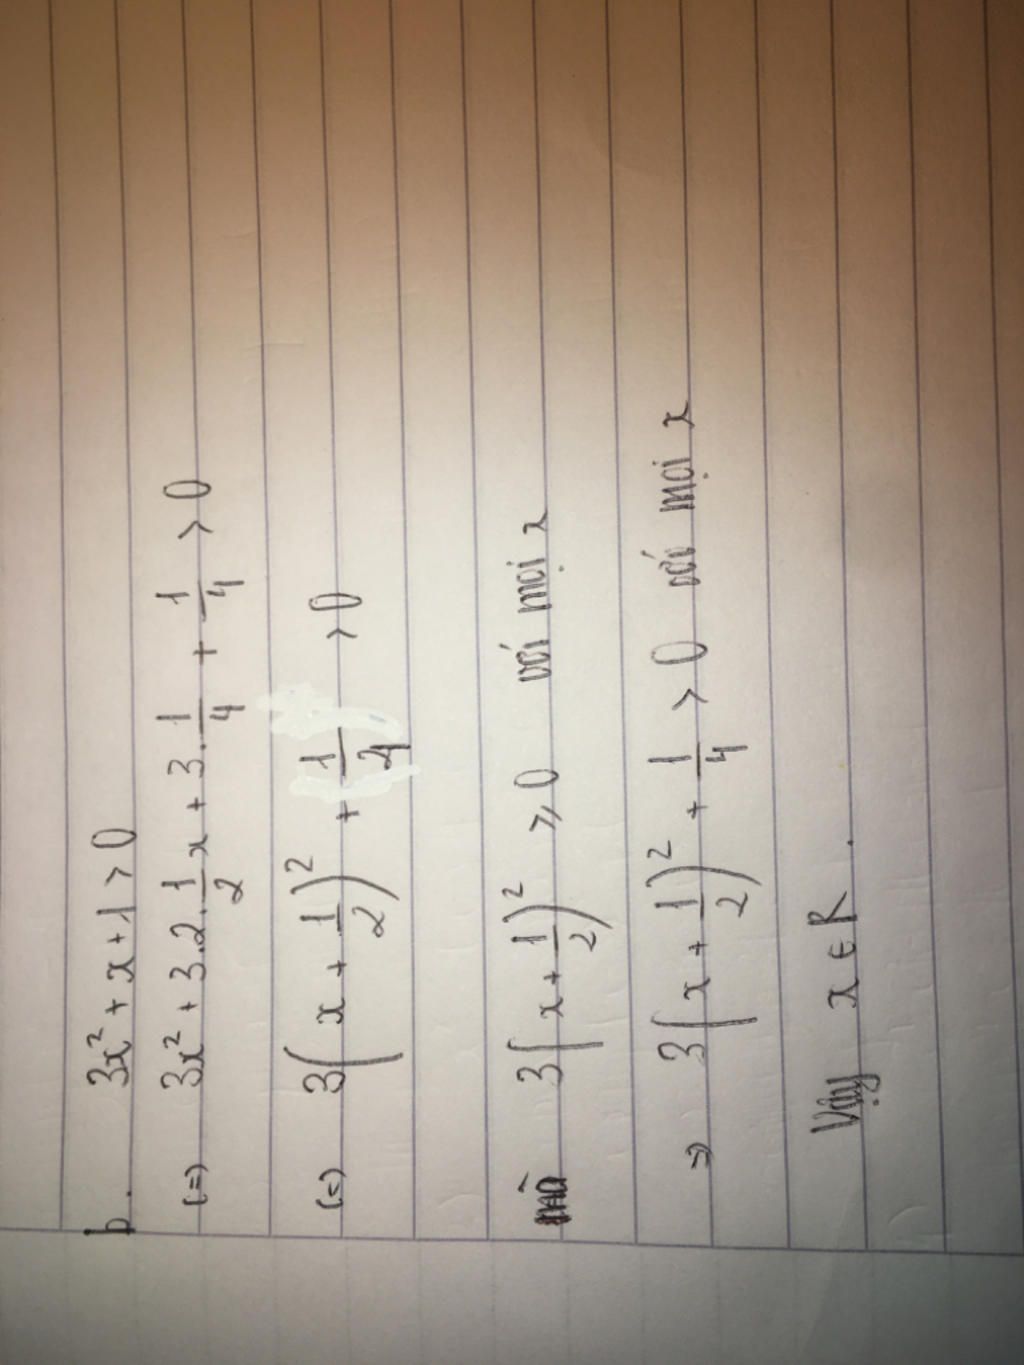 b. 3x² + x + 1 > 0
(=) 3x² + 3.2.1/2x + 3.1/4 + 1/4 > 0
(=) 3(x + 1/2)² + 1/4 > 0
mà 3(x + 1/2)² ⩾ 0 với mọi x
=> 3(x + 1/2)² + 1/4 > 0 với mọi x
Vậy x ∈ R.